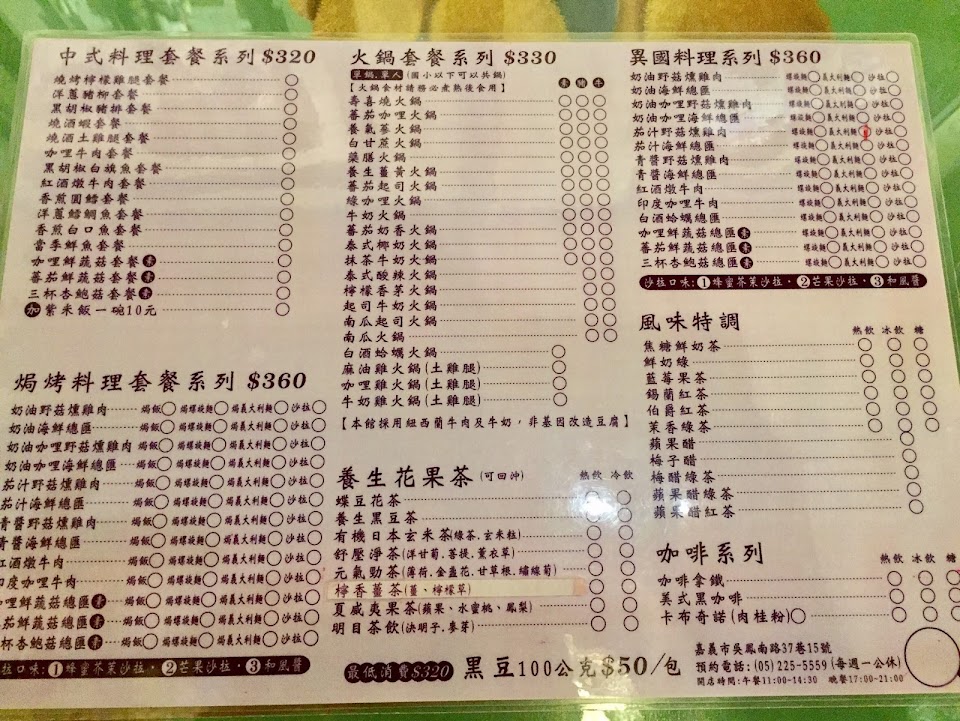 中式料理套餐系列 $320
燒烤檸檬雞腿套餐
洋蔥豬柳套餐
黑胡椒豬排套餐
燒酒蝦套餐
燒酒土雞腿套餐
咖哩牛肉套餐
黑胡椒白旗魚套餐
紅酒燉牛肉套餐
香煎圓鱈套餐
洋蔥鱈鯛魚套餐
香煎白口魚套餐
當季鮮魚套餐
咖哩鮮蔬菇套餐 素
蕃茄鮮蔬菇套餐 素
三杯杏鮑菇套餐 素
加 紫米飯一碗10元
焗烤料理套餐系列 $360
奶油野菇燻雞肉 焗飯 焗螺旋麵 焗義大利麵 沙拉
奶油海鮮總匯 焗飯 焗螺旋麵 焗義大利麵 沙拉
奶油咖哩野菇燻雞肉 焗飯 焗螺旋麵 焗義大利麵 沙拉
奶油咖哩海鮮總匯 焗飯 焗螺旋麵 焗義大利麵 沙拉
茄汁野菇燻雞肉 焗飯 焗螺旋麵 焗義大利麵 沙拉
茄汁海鮮總匯 焗飯 焗螺旋麵 焗義大利麵 沙拉
青醬野菇燻雞肉 焗飯 焗螺旋麵 焗義大利麵 沙拉
青醬海鮮總匯 焗飯 焗螺旋麵 焗義大利麵 沙拉
紅酒燉牛肉 焗飯 焗螺旋麵 焗義大利麵 沙拉
印度咖哩牛肉 焗飯 焗螺旋麵 焗義大利麵 沙拉
咖哩鮮蔬菇總匯 素 焗飯 焗螺旋麵 焗義大利麵 沙拉
茄鮮蔬菇總匯 素 焗飯 焗螺旋麵 焗義大利麵 沙拉
杯杏鮑菇總匯 素 焗飯 焗螺旋麵 焗義大利麵 沙拉
拉口味:1蜂蜜芥茉沙拉.2芒果沙拉.3和風醬
火鍋套餐系列 $330
單鍋.單人(國小以下可以共鍋)
【火鍋食材請務必煮熟後食用】 素 豬 牛
壽喜燒火鍋
蕃茄咖哩火鍋
養氣蔘火鍋
白甘蔗火鍋
藥膳火鍋
養生薑黃火鍋
蕃茄起司火鍋
綠咖哩火鍋
牛奶火鍋
蕃茄奶香火鍋
泰式椰奶火鍋
抹茶牛奶火鍋
泰式酸辣火鍋
檸檬香茅火鍋
起司牛奶火鍋
南瓜起司火鍋
南瓜火鍋
白酒蛤蠣火鍋
麻油雞火鍋(土雞腿)
咖哩雞火鍋(土雞腿)
牛奶雞火鍋(土雞腿)
【本館採用紐西蘭牛肉及牛奶,非基因改造豆腐】
養生花果茶(可回沖) 熱飲 冷飲
蝶豆花茶
養生黑豆茶
有機日本玄米茶(綠茶.玄米粒)
舒壓淨茶(洋甘菊.菩提.薰衣草)
元氣勁茶(薄荷.金盞花.甘草根.繡線菊)
檸香薑茶(薑、檸檬草)
夏威夷果茶(蘋果、水蜜桃、鳳梨)
明目茶飲(決明子.麥芽)
最低消費$320 黑豆100公克$50/包
異國料理系列 $360
奶油野菇燻雞肉 螺旋麵 義大利麵 沙拉
奶油海鮮總匯 螺旋麵 義大利麵 沙拉
奶油咖哩野菇燻雞肉 螺旋麵 義大利麵 沙拉
奶油咖哩海鮮總匯 螺旋麵 義大利麵 沙拉
茄汁野菇燻雞肉 螺旋麵 義大利麵 沙拉
茄汁海鮮總匯 螺旋麵 義大利麵 沙拉
青醬野菇燻雞肉 螺旋麵 義大利麵 沙拉
青醬海鮮總匯 螺旋麵 義大利麵 沙拉
紅酒燉牛肉 螺旋麵 義大利麵 沙拉
印度咖哩牛肉 螺旋麵 義大利麵 沙拉
白酒蛤蠣總匯 螺旋麵 義大利麵 沙拉
咖哩鮮蔬菇總匯 素 螺旋麵 義大利麵 沙拉
蕃茄鮮蔬菇總匯 素 螺旋麵 義大利麵 沙拉
三杯杏鮑菇總匯 素 螺旋麵 義大利麵 沙拉
沙拉口味:1蜂蜜芥茉沙拉.2芒果沙拉.3和風醬
風味特調 熱飲 冰飲 糖
焦糖鮮奶茶
鮮奶綠
藍莓果茶
錫蘭紅茶
伯爵紅茶
茉香綠茶
蘋果醋
梅子醋
梅醋綠茶
蘋果醋綠茶
蘋果醋紅茶
咖啡系列 熱飲 冰飲 糖
咖啡拿鐵
美式黑咖啡
卡布奇諾(肉桂粉)
嘉義市吳鳳南路37巷15號
預約電話:(05)225-5559(每週一公休)
開店時間:午餐11:00-14:30 晚餐17:00-21:00